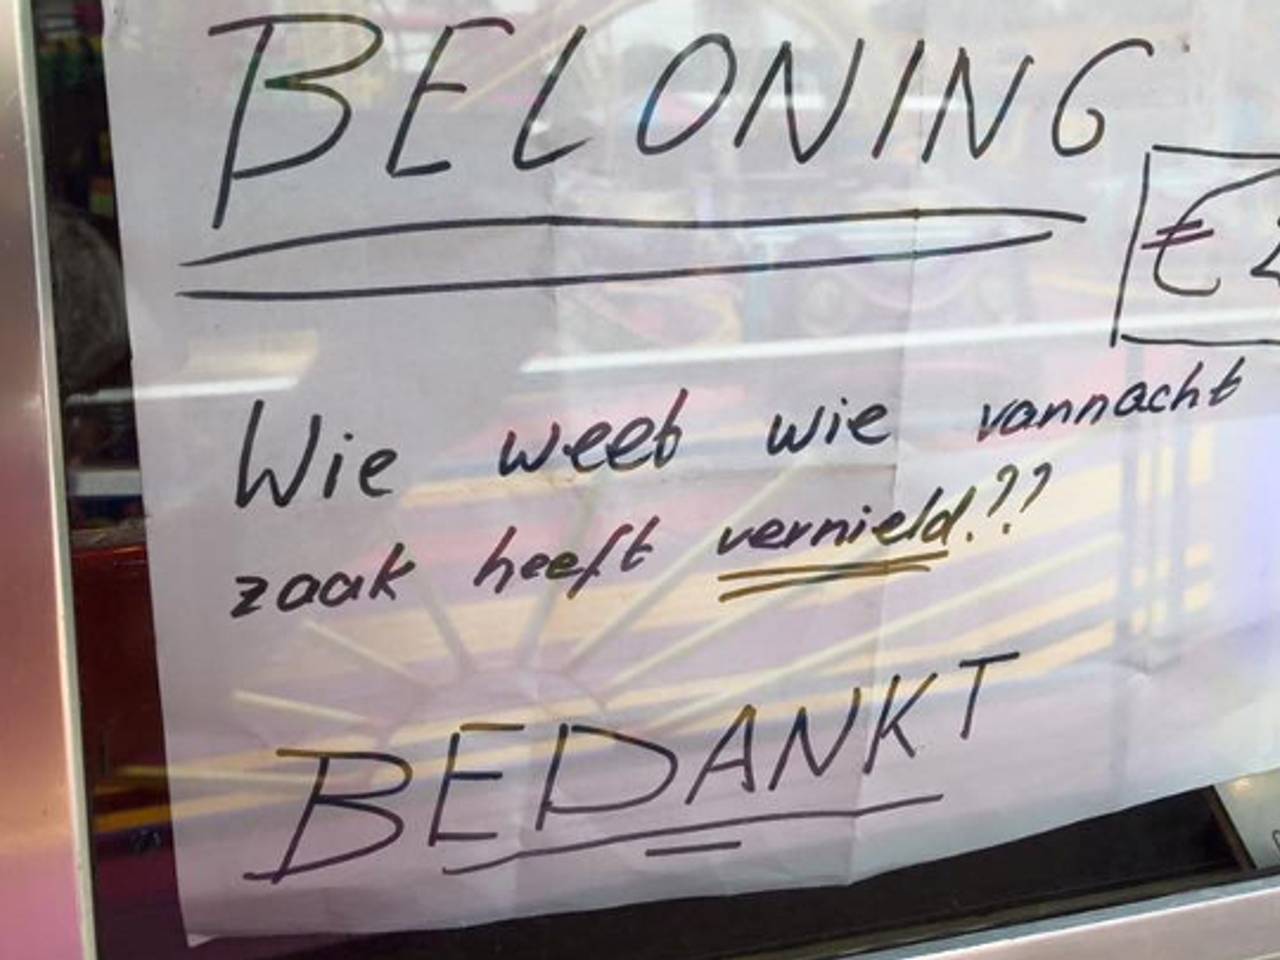 BELONING
€
Wie weet wie vannacht
zaak heeft vernield.??
BEDANKT